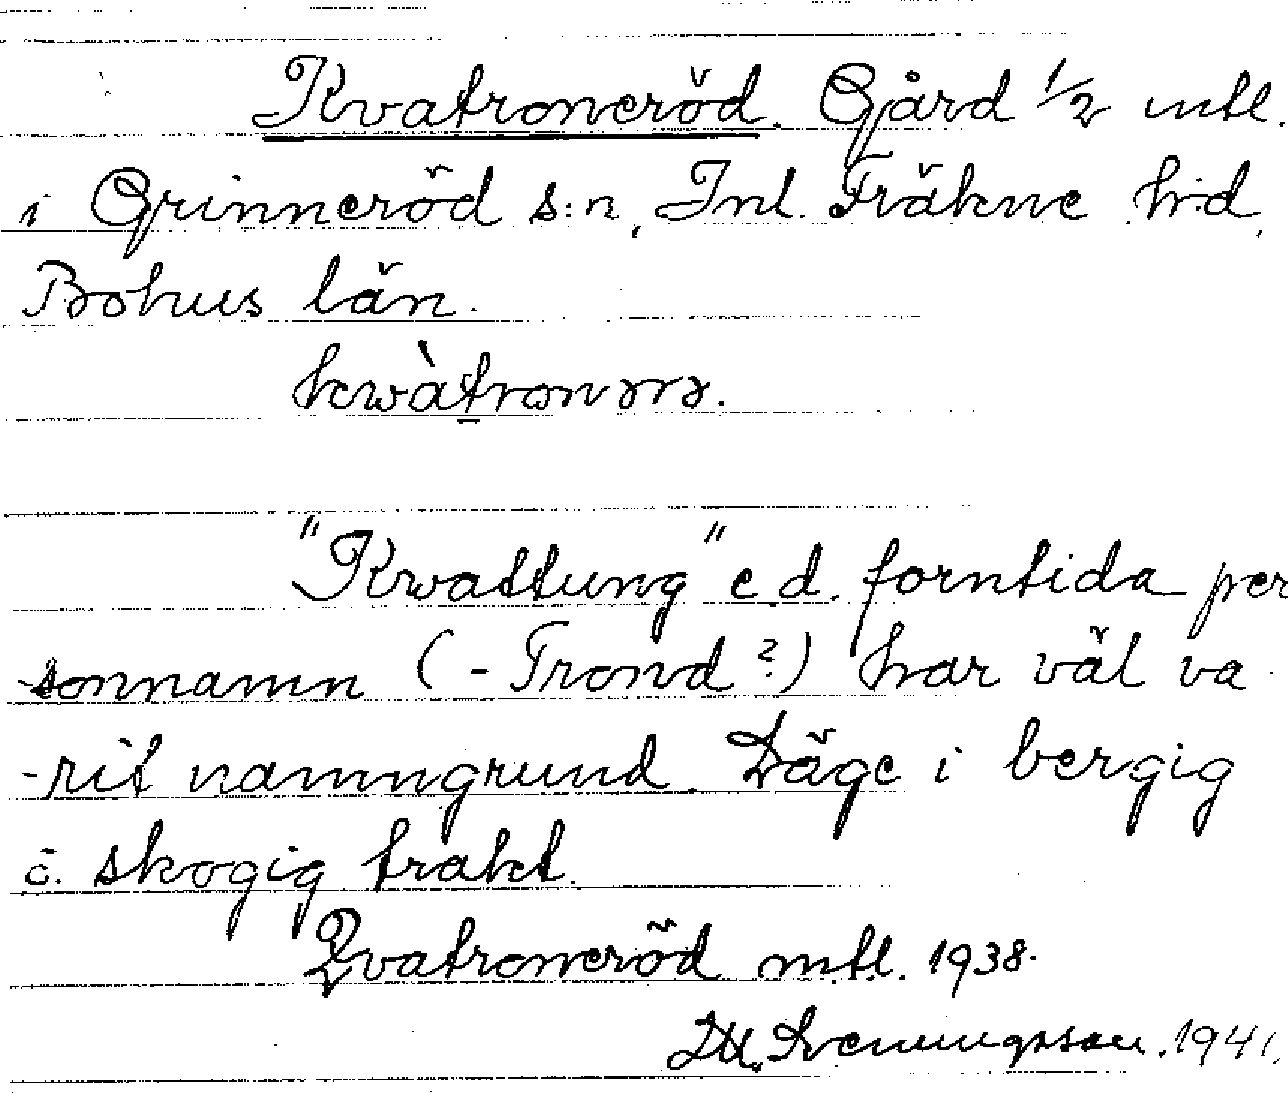 Kvatroneröd. Gård 1/2 mtl.
i Grinneröd s:n, Inl. Fräkne h:d,
Bohus län.
kwàtronərə.
"Kvattung" e d. forntida per
-sonnamn (-Trond?) har väl va
-rit namngrund. Läge i bergig
o. skogig trakt.
Qvatroneröd mtl. 1938.
Sveningsson. 1941.